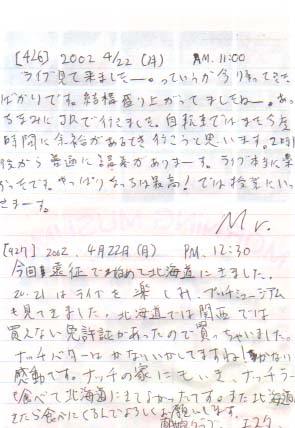 [426] 2002 4/22 (月) AM. 11:00
ライブ見て来ましたー。っていうか今り帰ってきた
ばかりです。結構盛り上がってましたねー。あっ
ちなみにJRで行きました。自転車ではまた今度
時間に余裕があるとき行こうと思います。2時1
役から普通に講義がありまーす。ライブ本当に楽
かったです。やっぱりなっちは最高!では授業にいっ
きまーす。
Mr.
[427] 2002. 4月22日(月) PM. 12:30
今回遠征で始めて北海道にきました。
20.21はライブを楽しみ、プッチミュージアム
も見てきました。北海道では関西では
買えない免許証があったので買っちゃいました。
ナッチバターは かないかしてますね!
感動です。ナッチの家にもいき、ナッチラー
も食べて北海道にきてよかったです。また北海道
きたら食べにくるんでよろしくお願いします。